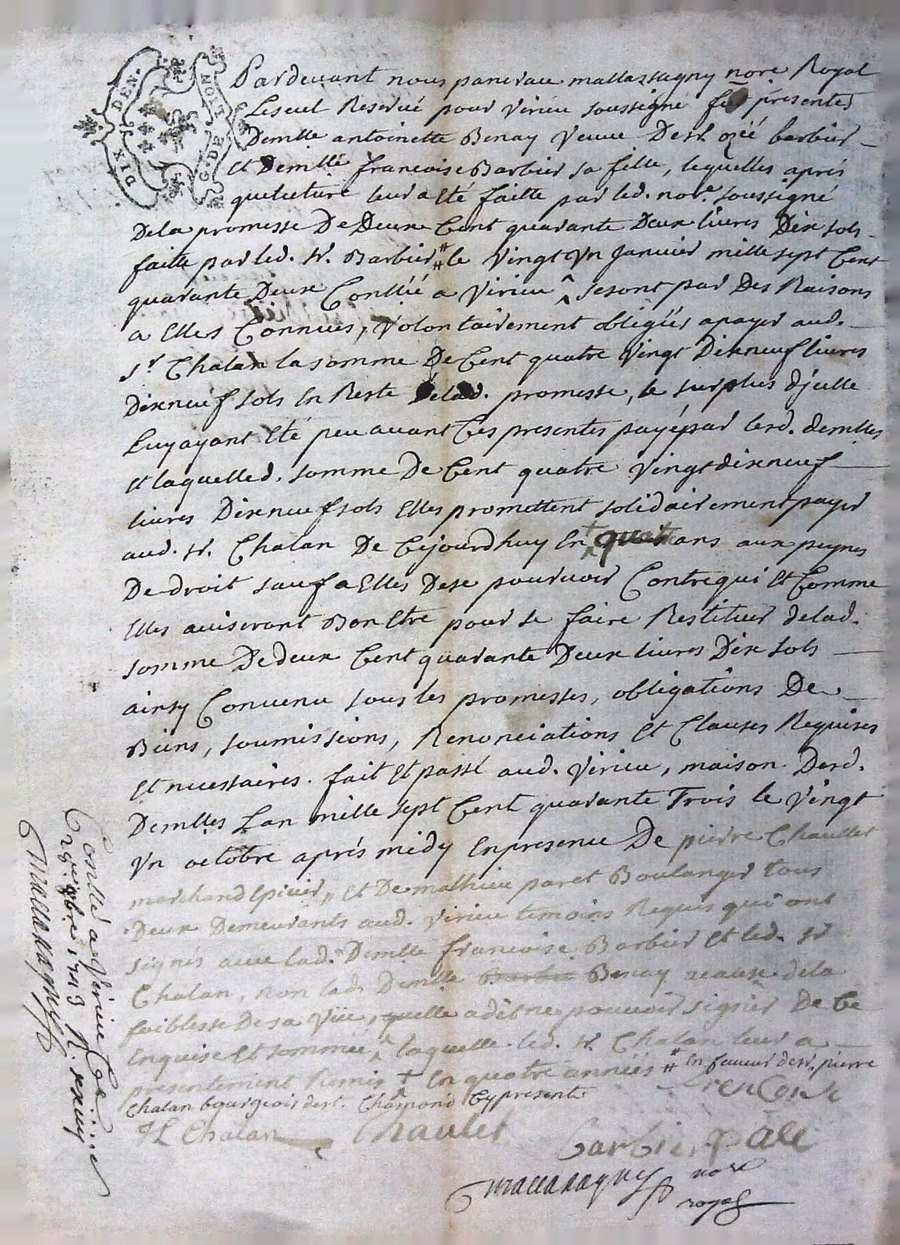 DIX DEN.
G. DE
Pardevant nous mallassagny nore Royal
Reservé pour Virieu soussigné presente
Demlle antoinette Benay Veuve De sr. ozée barbier
Et Demlle francoise Barbier sa fille, lequelles aprés
que lecture leur a Eté faitte par led. nore. soussigné
De la promesse De Deux Cent quarante Deux livres Dix sols
faitte par led. sr. Barbier # le Vingt Vn Janvier mille sept Cent
quarante Deux Contllé a Virieu ^ se sont par Des Raisons
a Elles Connues, Volontairement obligés a payer aud.
sr. Chalan la somme De Cent quatre Vingt Dixneuf livres
Dixneuf sols En Reste Delad. promesse, le surplus d'jcelle
Luy ayant Eté peu avant Ces presentes payé par lesd. demlles
Et laquelled. somme De Cent quatre Vingt dixneuf
livres Dixneuf sols Elles promettent solidairement payer
aud. sr. Chalan De Cejourdhuy En + ans aux peynes
De droit sauf a Elles De se pourvoir Contre qui Et Comme
Elles aviseront Bon Etre pour se faire Restituer delad.
somme De deux Cent quarante Deux livres Dix sols
ainsy Convenu sous les promesses, obligations De
Biens, soumissions, Renonciations Et Clauses Requises
Et necessaires. fait Et passé aud. Virieu, maison Desd.
Demlles L'an mille sept Cent quarante Trois le Vingt
Vn octobre aprés midy En presence De pierre Chaullet
marchand Epicier, Et De mathieu paret Boulanger tous
Deux Demeurants aud. Virieu temoins Requis qui ont
signés avec lad. Demlle francoise Barbier Et led. sr
Chalan, non lad. Demlle Benay a cause de la
foiblesse De sa Vüe, quelle a dit ne pouvoir signer De Ce
Enquise Et sommée ^ laquelle led. sr. Chalan leur a
presentement Remis + En quatre années # En faveur de sr. pierre
Chalan bourgeois de st. Chamond Cy present
Chalan Chaulet
barbier
nore
royal
Contllé a Virieu Ce
8bre 1743 R.